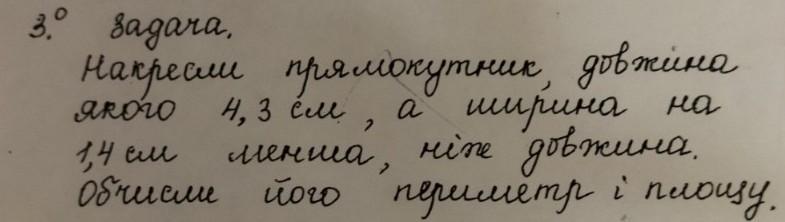 3.° Задача.
Накресли прямокутник, довжина
якого 4,3 см, а ширина на
1,4 см менша, ніж довжина.
Обчисли його периметр і площу.